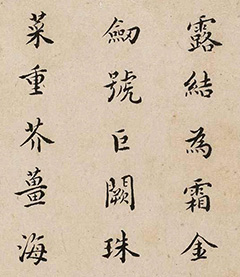 露結為霜金
劒號巨闕珠
菜重芥薑海